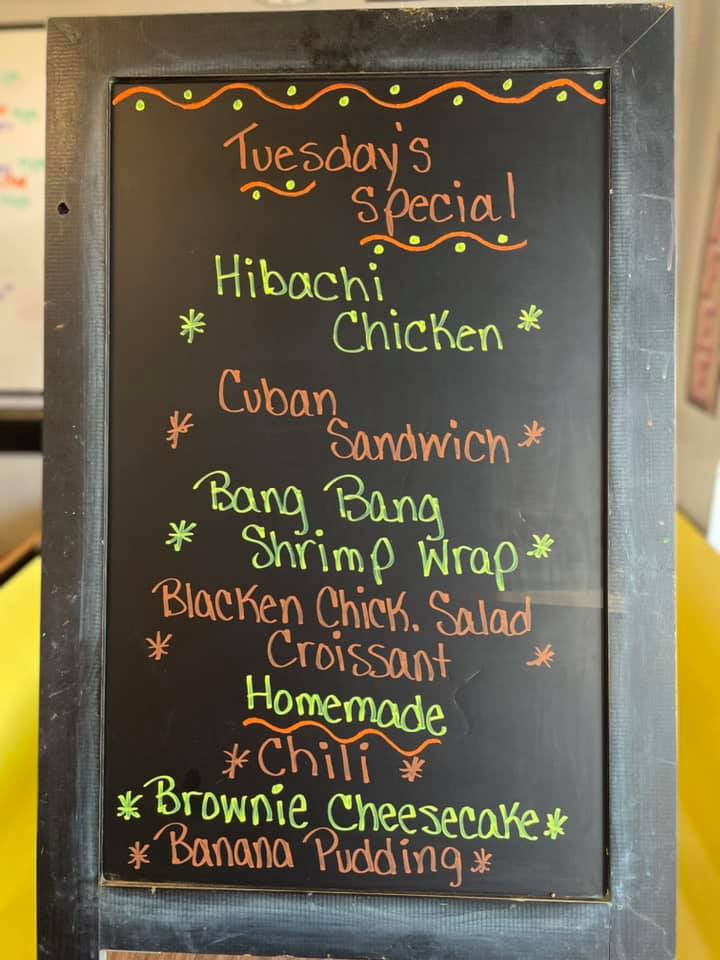 Tuesday's
Special
Hibachi
Chicken
Cuban
Sandwich
Bang Bang
Shrimp Wrap
Blacken Chick. Salad
Croissant
Homemade
Chili
Brownie Cheesecake
Banana Pudding